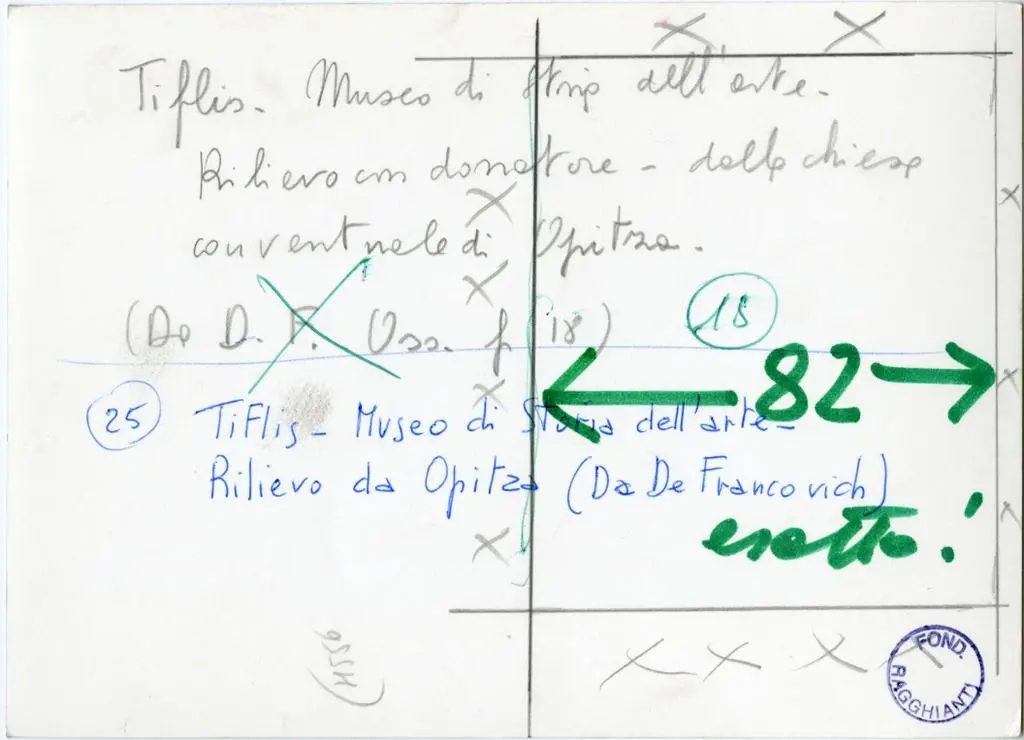 Tiflis - Museo di Storia dell'arte -
Rilievo con donatore - dalla chiesa
conventuale di Opitza.
(De D. F. Oss. f 18)
18
82
25 Tiflis - Museo di Storia dell'arte -
Rilievo da Opitza (Da De Francovich)
esatto!
FOND. RAGGHIANTI